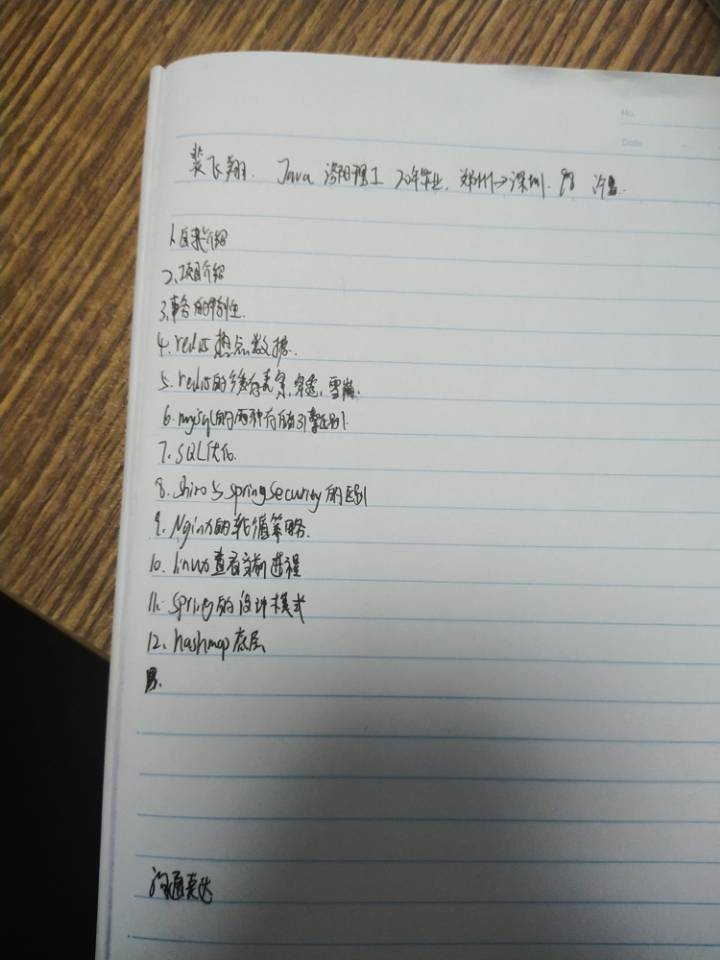 No.
Date
裴飞翔. Java 洛阳理工 20年毕业. 郑州→深圳.
1.自我介绍
2.项目介绍
3.事务的特性.
4.redis 热点数据.
5.redis的缓存击穿,穿透,雪崩.
6.mysql的两种存储引擎区别.
7.SQL优化.
8.shiro与springsecurity的区别
9.Nginx的轮循策略.
10.linux查看当前进程
11.spring的设计模式
12.hashmap底层
13.
沟通表达